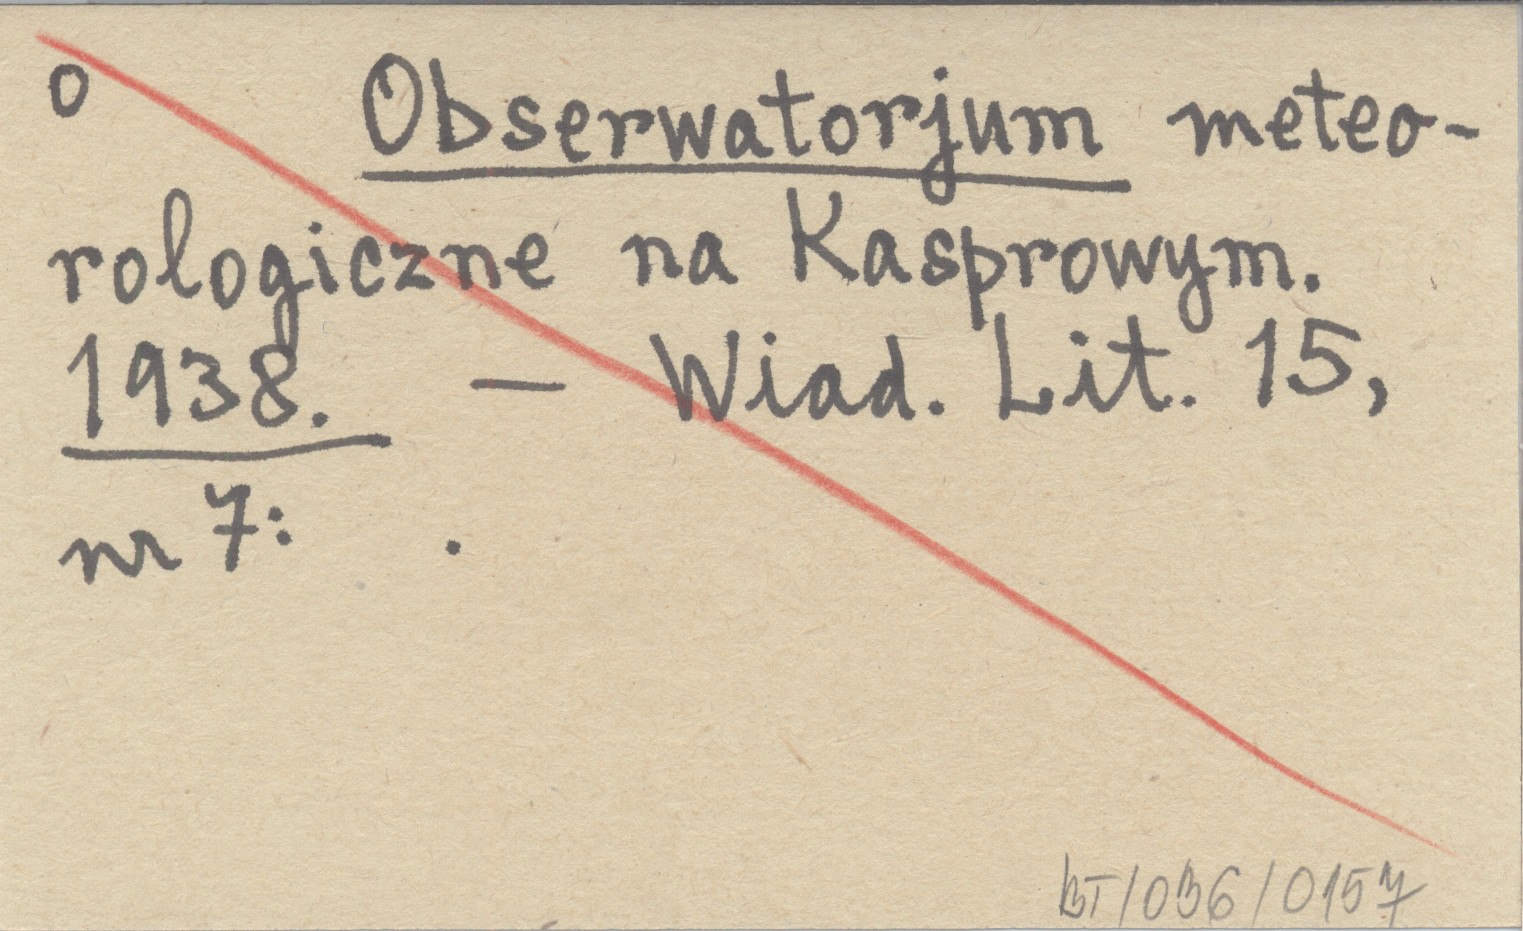 o Obserwatorjum meteo-
rologiczne na Kasprowym.
1938. — Wiad. Lit. 15,
nr 7: .
BT/036/0157